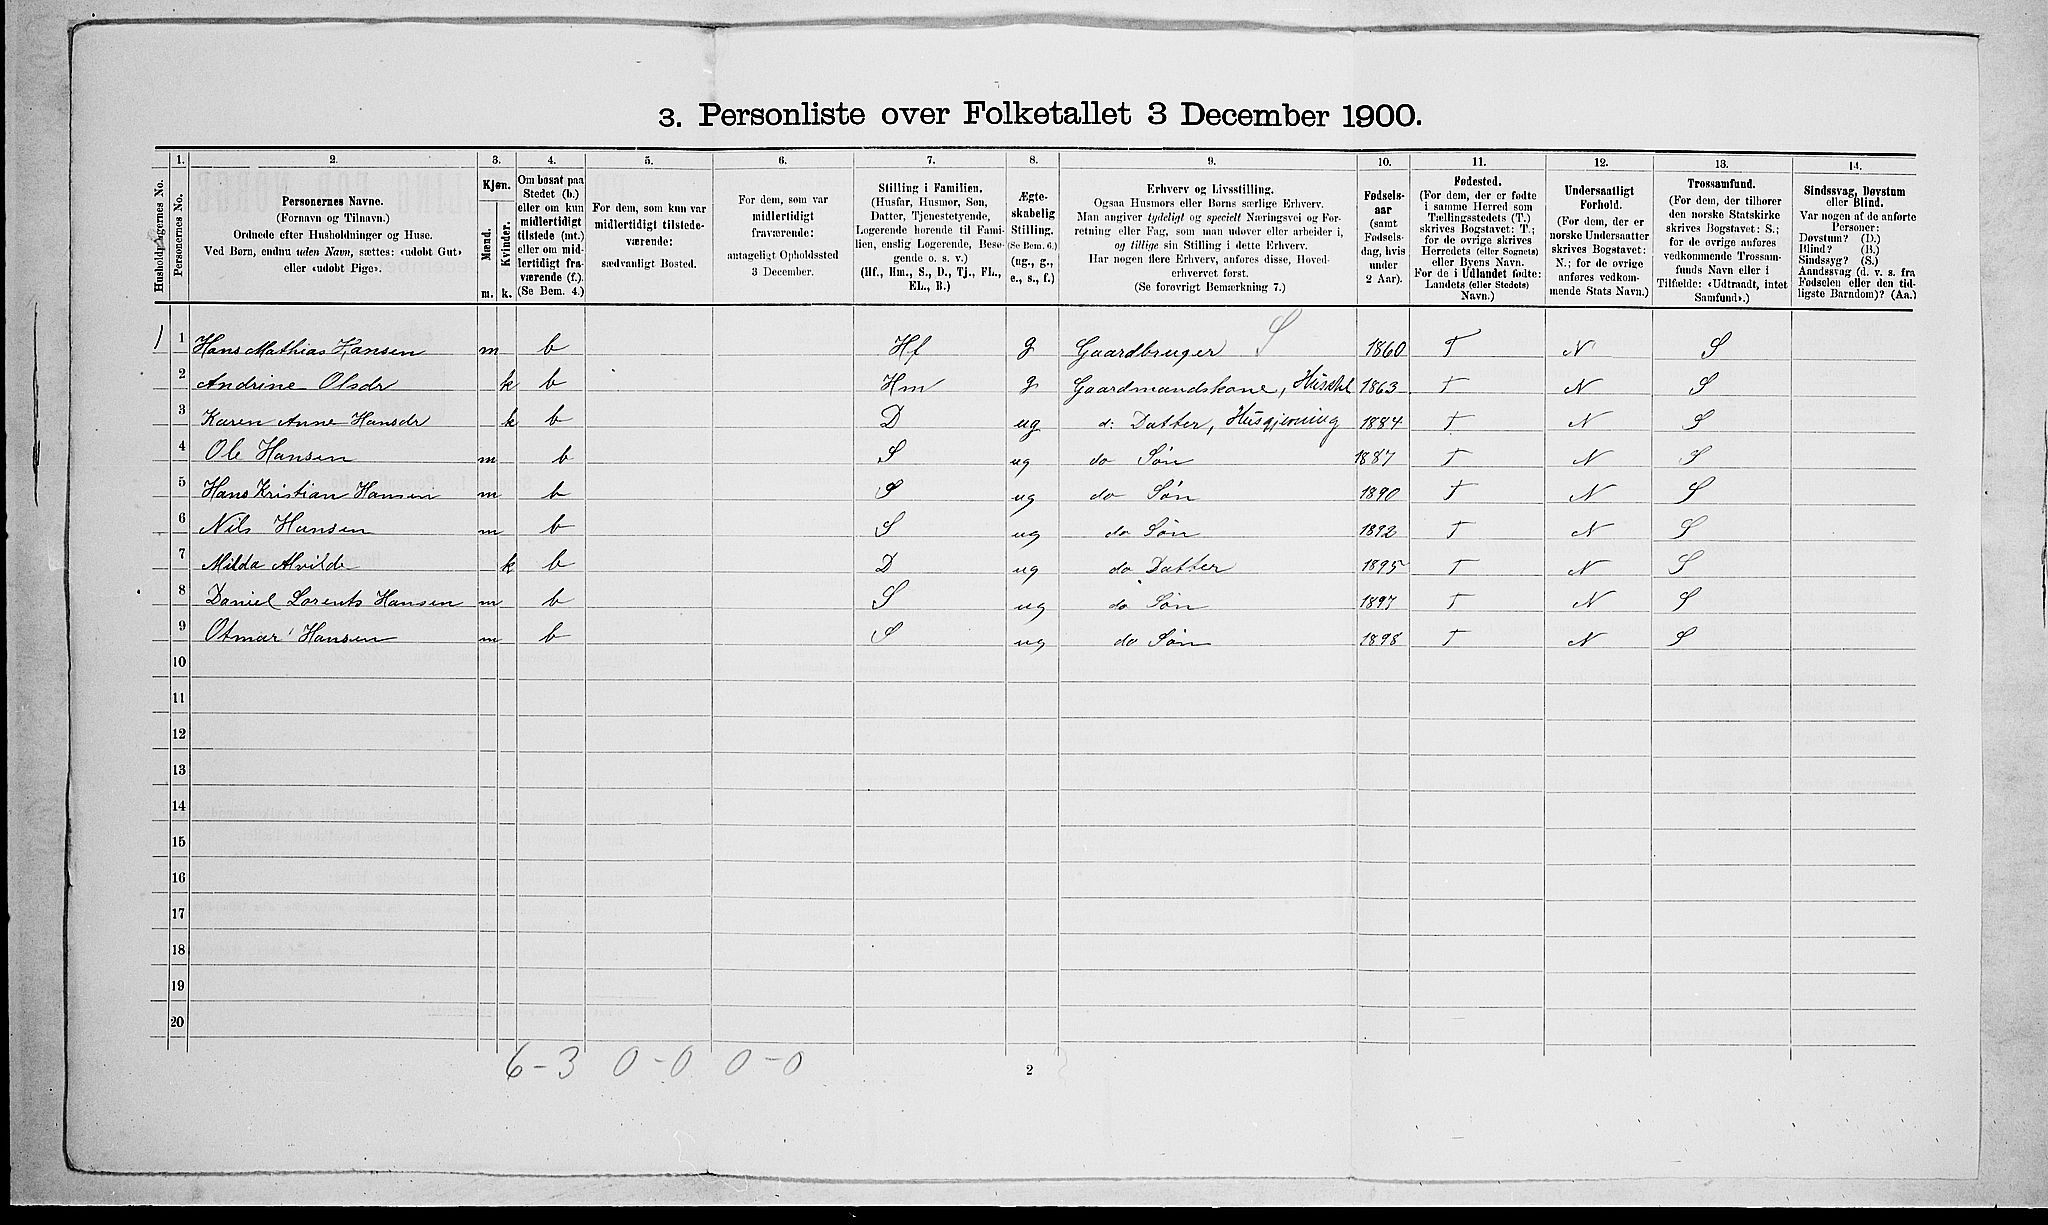 3. Personliste over Folketallet 3 December 1900.
Husholdningernes No.
1.
Personernes No.
2.
Personernes Navne.
(Fornavn og Tilnavn.)
Ordnede efter Husholdninger og Huse.
Ved Børn, endnu uden Navn, sættes: «udøbt Gut»
eller «udøbt Pige».
3.
Kjøn.
Mænd. Kvinder.
m. k.
4.
Om bosat paa
Stedet (b.)
eller om kun
midlertidigt
tilstede (mt.)
eller om mid-
lertidigt fra-
værende (f.).
(Se Bem. 4.)
5.
For dem, som kun var
midlertidigt tilstede-
værende:
sædvanligt Bosted.
6.
For dem, som var
midlertidigt
fraværende:
antageligt Opholdssted
3 December.
7.
Stilling i Familien.
(Husfar, Husmor, Søn,
Datter, Tjenestetyende,
Logerende hørende til Fami-
lien, enslig Logerende, Besø-
gende o. s. v.)
(Hf., Hm., S., D., Tj., FL.,
EL., B.)
8.
Ægte-
skabelig
Stilling.
(Se Bem. 6.)
(ug., g.,
e., s., f.)
9.
Erhverv og Livsstilling.
Ogsaa Husmors eller Børns særlige Erhverv.
Man angiver tydeligt og specielt Næringsvei og For-
retning eller Fag, som man udøver eller arbeider i,
og tillige sin Stilling i dette Erhverv.
Har nogen flere Erhverv, anføres disse, Hoved-
erhvervet først.
(Se forøvrigt Bemærkning 7.)
10.
Fødsels-
aar
(samt
Fødsels-
dag, hvis
under
2 Aar).
11.
Fødested.
(For dem, der er fødte
i samme Herred som
Tællingsstedets (T.)
skrives Bogstavet: T.;
for de øvrige skrives
Herredets (eller Sognets)
eller Byens Navn.
For de i Udlandet fødte:
Landets (eller Stedets)
Navn.)
12.
Undersaatligt
Forhold.
(For dem, der er
norske Undersaatter
skrives Bogstavet:
N.; for de øvrige
anføres vedkom-
mende Stats Navn.)
13.
Trossamfund.
(For dem, der tilhører
den norske Statskirke
skrives Bogstavet: S.;
for de øvrige anføres
vedkommende Trossam-
funds Navn eller i
Tilfælde: «Udtraadt, intet
Samfund».)
14.
Sindssvag, Døvstum
eller Blind.
Var nogen af de anførte
Personer:
Døvstum? (D.)
Blind? (B.)
Sindssyg? (S.)
Aandssvag (d. v. s. fra
Fødselen eller den tid-
ligste Barndom)? (Aa.)
1 1 Hans Mathias Hansen m b Hf g Gaardbruger S 1860 T N S
2 Andrine Olsdr k b Hm g Gaardmandskone, Husstel 1863 T N S
3 Karen Anne Hansdr k b D ug d: Datter, Husgjerning 1884 T N S
4 Ole Hansen m b S ug do Søn 1887 T N S
5 Hans Kristian Hansen m b S ug do Søn 1890 T N S
6 Nils Hansen m b S ug do Søn 1892 T N S
7 Milda Alvilde k b D ug do Datter 1895 T N S
8 Daniel Lorents Hansen m b S ug do Søn 1897 T N S
9 Otmar Hansen m b S ug do Søn 1898 T N S
10
11
12
13
14
15
16
17
18
19
20
6-3 0-0 0-0
2